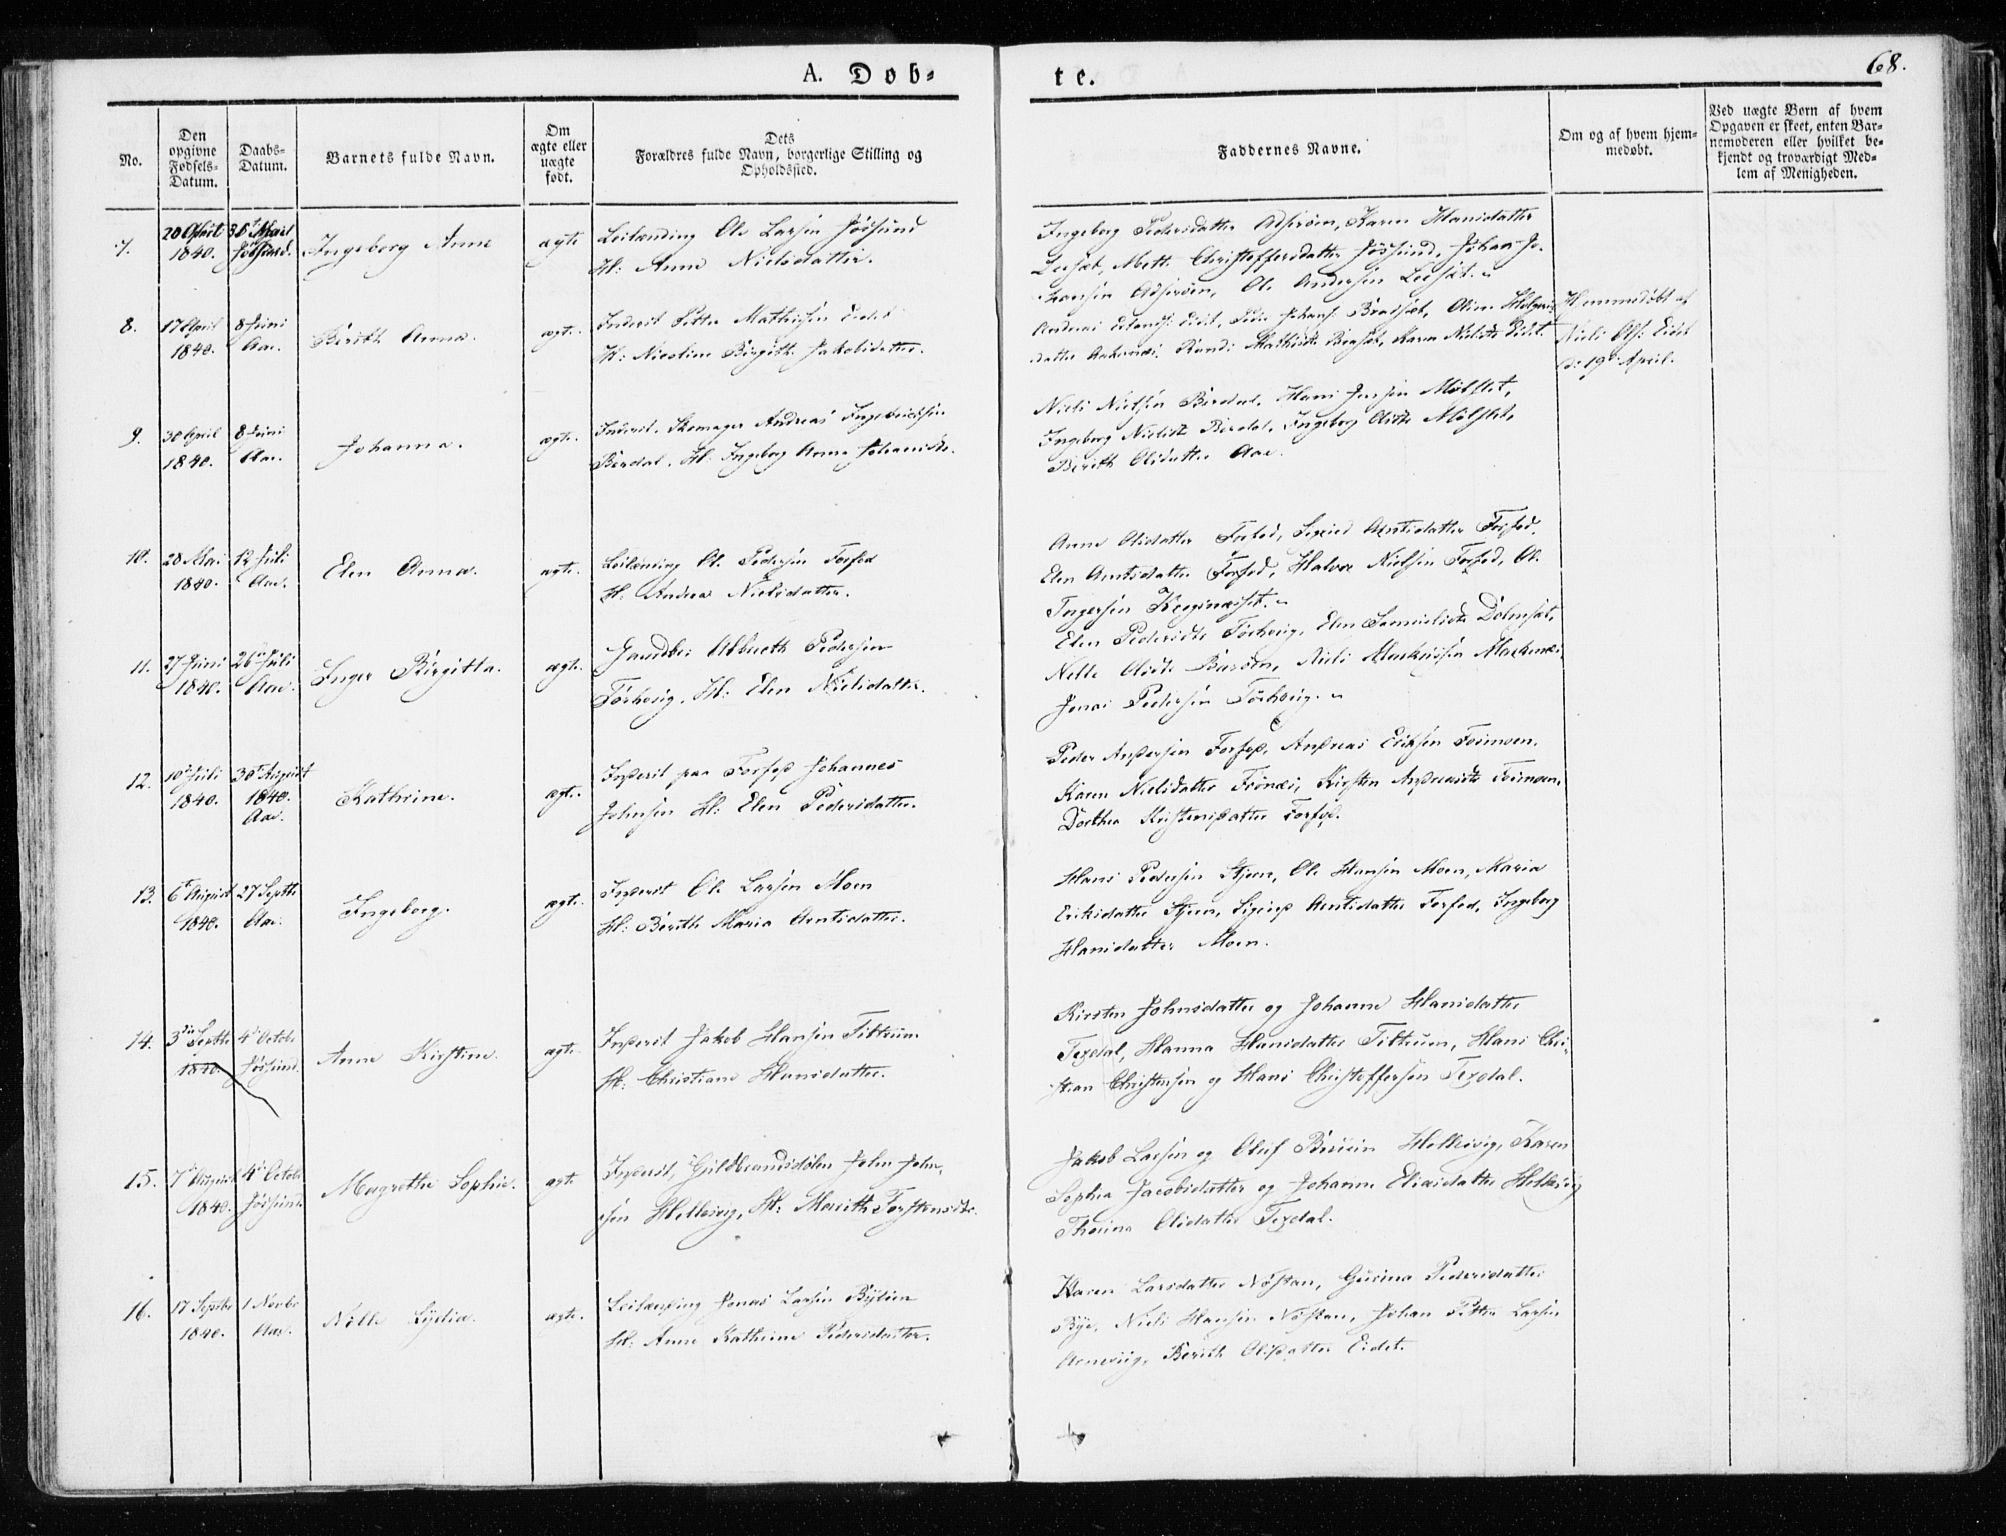 A. Døb-
te.
68.
No.
Den opgivne Fødsels-Datum.
Daabs-Datum.
Barnets fulde Navn.
Om ægte eller uægte født.
Dets Forældres fulde Navn, borgerlige Stilling og Opholdssted.
Faddernes Navne.
Om og af hvem hjem-medøbt.
Ved uægte Børn af hvem Opgaven er skeet, enten Bar-nemoderen eller hvilket be-kjendt og troværdigt Med-lem af Menigheden.
7.
20 April 1840.
31 Mai Jøssund.
Ingeborg Anne
ægte
Leilænding Ole Larsen Jøssund
H: Anne Nielsdatter.
Ingeborg Pedersdatter Karen Hansdatter
Mett Christoffersdatter Jøssund, Johan Jo-
hansen Ole Andersen
8.
17 April 1840.
8 Juni Aae.
Berith Anna.
ægte.
Inderst Petter Mathisen Eidet
H: Nicoline Birgith Jakobsdatter.
Karen Nielsdtr Eidet.
Hjemmedøbt af
Niels Ols: Eidet
d: 19de April.
9.
30 April 1840.
8 Juni Aae.
Johanna.
ægte.
Inderst, Skomager Andreas Ingebrigtsen
Berdal. H: Ingeborg Anna Johansdtr.
Niels Nielsen Berdal, Hans Jensen Mølslet,
Ingeborg Nielsdtr Berdal, Ingeborg Olsdtr Mølslet,
Berith Olsdatter Aae.
10.
28 Mai 1840.
12 Juli Aae.
Elen Anna.
ægte.
Leilænding Ole Pedersen Forfod
H: Andrea Nielsdatter.
Anne Olsdatter Forfod, Sigrid Arntsdatter Forfod,
Elen Arntsdatter Forfod, Halvor Nielsen Forfod, Ole
Ingersen
11.
27 Juni 1840.
26 Juli Aae.
Inger Birgitta.
ægte.
Gaardbr: Albrecth Pedersen
Tørhvig, H: Elen Nielsdatter.
Elen Pedersdtr Tørhvig, Elen Samuelsdtr Dolmsæt,
Nelle Olsdtr Barøen, Niels Markussen
Jonas Pedersen Tørhvig.
12.
10 Juli 1840.
30 August 1840. Aae.
Kathrine.
ægte.
Inderst paa Forfod Johannes
Johnsen H: Elen Pedersdatter.
Peder Andersen Forfod, Andreas Eriksen Formoen.
Karen Nielsdatter Kirsten Andreasdtr Formoen,
Dorthea Kristensdatter Forfod.
13.
6 August 1840.
27 Septbr Aae.
Ingeborg.
ægte.
Inderst Ole Larsen Moen
H: Berith Maria Arntsdatter.
Hans Pedersen Stjern, Ole Hansen Moen, Maria
Eriksdatter Stjern, Sigrid Arntsdatter Forfod, Ingeborg
Hansdatter Moen.
14.
3die Septbr 1840.
4 Octobr Jøssund.
Anne Kirstine.
ægte.
Inderst Jakob Hansen Titrum
H: Christiane Hansdatter.
Kirsten Johnsdatter og Johanne Hansdatter
Texdal, Hanna Hansdatter Titrum, Hans Chri-
stian Christensen og Hans Christoffersen Texdal.
15.
7 August 1840.
4 Octobr Jøssund.
Magrethe Sophie.
ægte
Inderst, Guldbrandsdølen John John-
sen Hellesvig, H: Marith Torstensdtr.
Jakob Larsen og Oluf Hellesvig, Karen
Sophia Jacobsdatter og Johanne Eliasdatter Hellesvig
Olsdatter Texdal.
16.
17 Septbr 1840.
1 Novbr Aae.
Nelle Lydia.
ægte.
Leilænding Jonas Larsen
H: Anne Kathrine Pedersdatter.
Karen Larsdatter Nøstan, Gurina Pedersdatter
Bye, Niels Hansen Nøstan, Johan Petter Larsen
Arnevig, Berith Olsdatter Eidet.